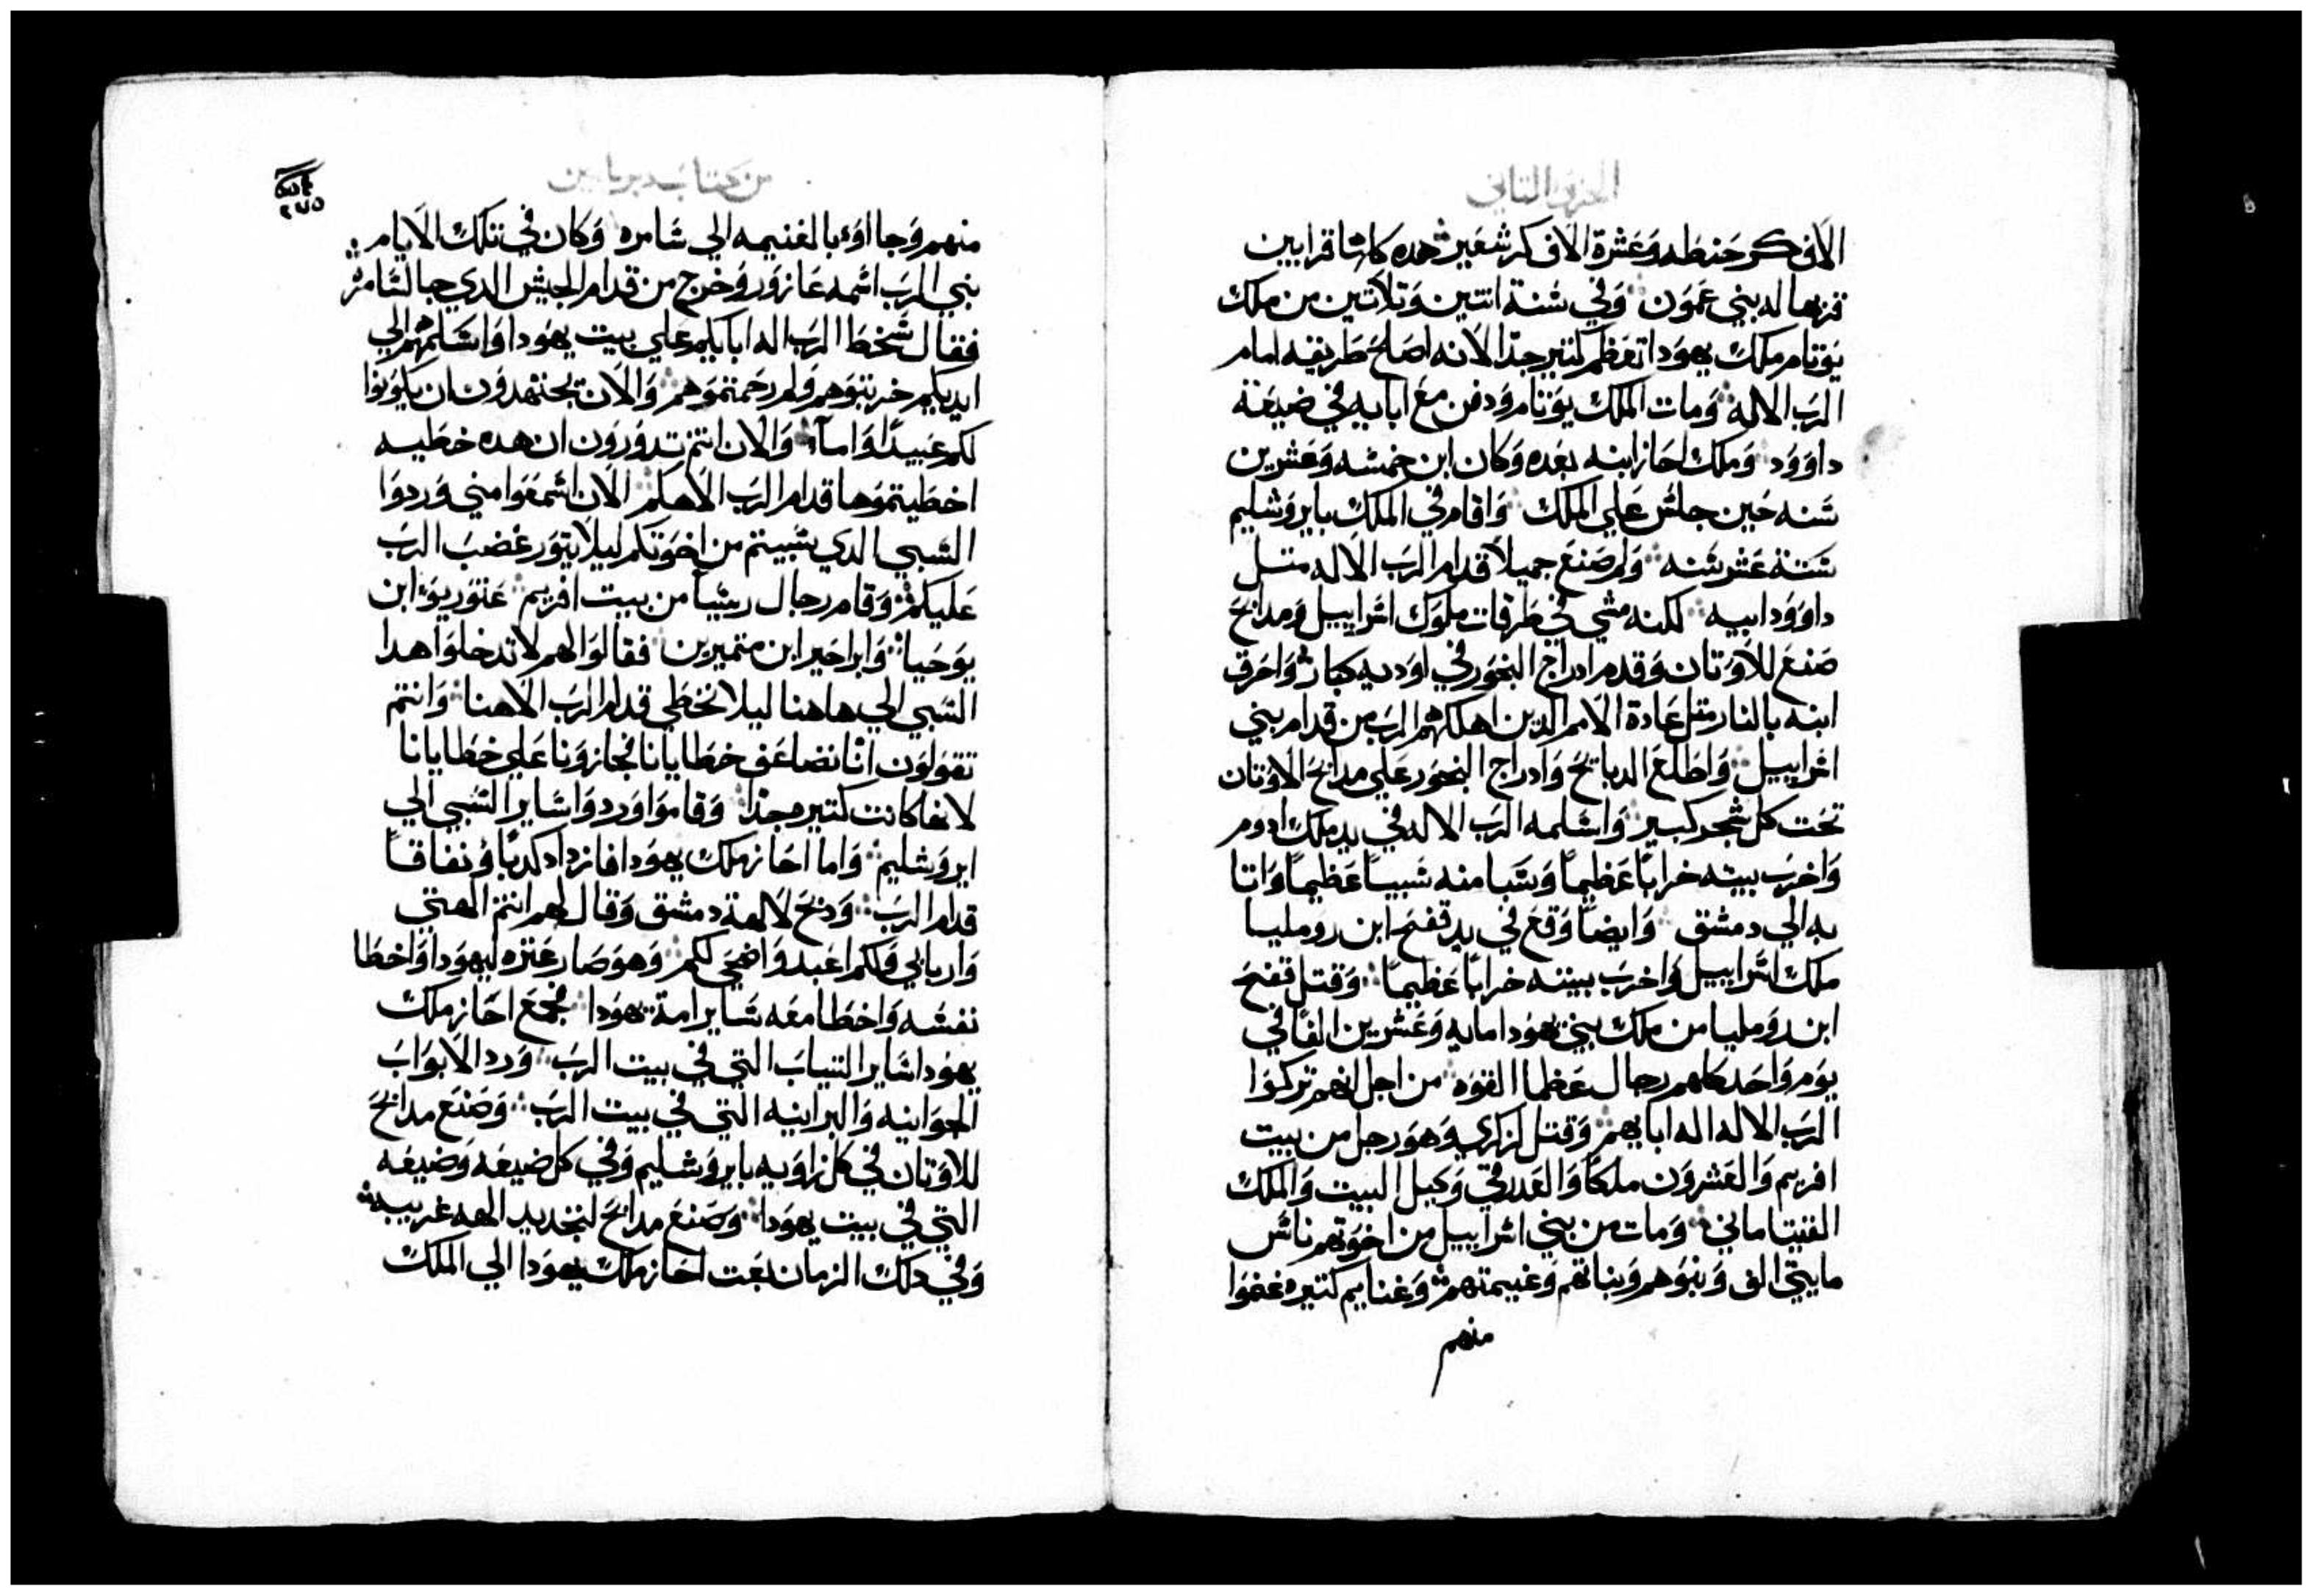 الجزو التاني
الاف كر حنطه وعشرة الاف كر شعير هده كلها قرابين
قربها له بني عمون وفي سنة اتنين وتلاتين من ملك
يوتام ملك يهودا تعظم كتير جدا لانه اصلح طريقه امام
الرب الاله ومات الملك يوتام ودفن مع ابايه في ضيعة
داوود وملك احاز ابنه بعده وكان ابن خمسه وعشرين
سنه حين جلس علي الملك واقام في الملك بايروشليم
ستة عشر سنه ولم صنع جميلا قدام الرب الاله متل
داوود ابيه لكنه مشي في طرقات ملوك اسراييل ومدابح
صنع للاوتان وقدم ادراج البخور في اوديه كبار واحرق
ابنه بالنار متل عادة الامم الدين اهلكهم الرب من قدام بني
اسراييل واطلع الدبايح وادراج البخور علي مدابح الاوتان
تحت كل شجر كبير واسلمه الرب الاله في يد ملك ادوم
واخرب بيته خرابا عظيما وسبا منه سبيا عظيما واتا
به الي دمشق وايضا وقع في يد قفح ابن رومليا
ملك اسراييل واخرب بيته خرابا عظيما وقتل قفح
ابن رومليا من ملك بني يهودا مايه وعشرين الفا في
يوم واحد كلهم رجال عظما القوه من اجل انهم تركوا
الرب الاله اله ابايهم وقتل لزكري وهو رجل من بيت
افريم والعشرون ملكا والعدرقي وكيل البيت والملك
الفنيتاماني ومات من بني اسراييل من اخوتهم ناس
مايتي الف وبنوهم وبناتهم وغنيمتهم وغنايم كتيره غنموا
منهم
من كتاب دبريامين
٢٧٥
منهم وجااوء بالغنيمه الي سامره وكان في تلك الايام
نبي الرب اسمه عازور وخرج من قدام الجيش الدي جا لسامره
فقال سخط الرب اله اباييكم علي بيت يهودا واسلمهم الي
ايديكم خربتوهم ولم رحمتموهم والان تجتهدون ان يكونوا
لكم عبيدا واماآ والان انتم تدورون ان هده خطيه
اخطيتموها قدام الرب الاهكم الان اسمعوا مني وردوا
السبي الدي سبيتم من اخوتكم ليلا يتور غضب الرب
عليكم وقام رجال ريسا من بيت افريم عنوريوء ابن
يوحيا وابراخير ابن متميرين فقالوا لهم لا تدخلوا هدا
السبي الي هاهنا ليلا نخطي قدام الرب الاهنا وانتم
تقولون اننا نضاعف خطايانا فجازونا علي خطايانا
لانها كانت كتيره جدا وقاموا وردوا ساير السبي الي
ايروشليم واما احاز ملك يهودا فازداد كدبا ونفاقا
قدام الرب ودبح لالهة دمشق وقال لهم انتم الهتي
واربابي ولكم اعبد واضحي لكم وهو صار عتره ليهودا واخطا
نفسه واخطا معه ساير امة يهودا فجمع احاز ملك
يهودا ساير التياب التي في بيت الرب ورد الابواب
الجوانيه والبرانيه التي في بيت الرب وصنع مدابح
للاوتان في كل زاويه بايروشليم وفي كل ضيعه وضيعه
التي في بيت يهودا وصنع مدابح لتجديد الهه غريبه
وفي دلك الزمان بعت احاز ملك يهودا الي الملك